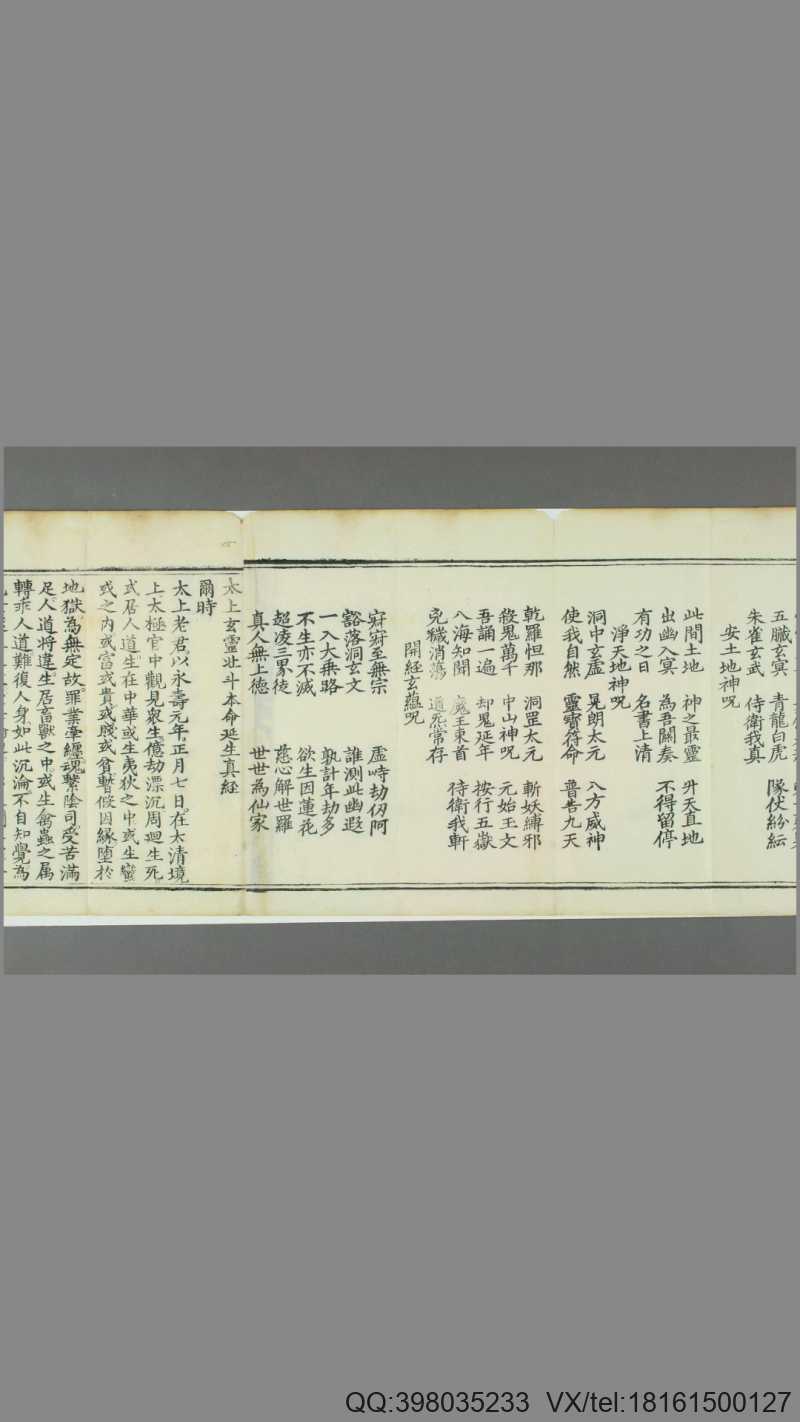 五臟玄冥 青龍白虎 隊伏紛紜
朱雀玄武 侍衛我真
安土地神呪
此間土地 神之最靈 升天直地
出幽入冥 為吾關奏 不得留停
有功之日 名書上清
淨天地神呪
洞中玄虛 晃朗太元 八方威神
使我自然 靈寶符命 普告九天
乾羅怛那 洞罡太元 斬妖縛邪
殺鬼萬千 中山神呪 元始玉文
吾誦一遍 却鬼延年 按行五嶽
八海知聞 魔王束首 侍衛我軒
兇穢消蕩 道炁常存
開經玄蘊呪
寂寂至無宗 虛峙劫仞阿
豁落洞玄文 誰測此幽遐
一入大乘路 孰計年劫多
不生亦不滅 欲生因蓮花
超凌三界徒 慈心解世羅
真人無上德 世世為仙家
太上玄靈北斗本命延生真經
爾時
太上老君以永壽元年正月七日在太清境
上太極宮中觀見衆生億劫漂沉周迴生死
或居人道生在中華或生夷狄之中或生蠻
戎之內或富或貴或賤或貧暫假因緣墮於
地獄為無定故罪業牽纏魂繫陰司受苦滿
足人道將違生居畜獸之中或生禽蟲之屬
轉乖人道難復人身如此沉淪不自知覺為
QQ:398035233 VX/tel:18161500127